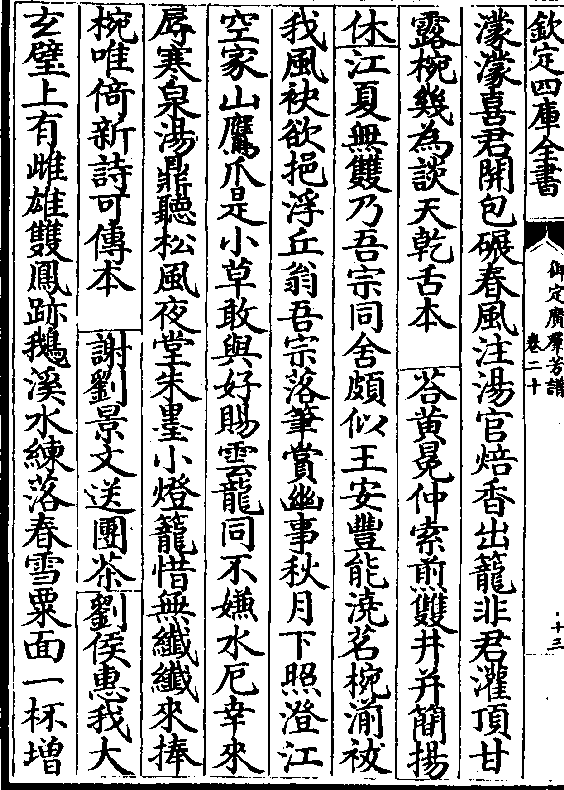 欽定四庫全書
御定廣羣芳譜
卷二十
十三
濛濛喜君開包碾春風注湯官焙香出籠非君灌頂甘
露椀幾為談天乾舌本　荅黃冕仲索煎雙井并簡揚
休江夏無雙乃吾宗同舍頗似王安豐能澆茗椀湔祓
我風袂欲挹浮丘翁吾宗落筆賞幽事秋月下照澄江
空家山鷹爪是小草敢與好賜雲龍同不嫌水厄幸來
辱寒泉湯鼎聽松風夜堂朱墨小燈籠惜無纖纖來捧
椀唯倚新詩可傳本　謝劉景文送團茶劉侯惠我大
玄璧上有雌雄雙鳳跡鵝溪水練落春雪粟面一杯增